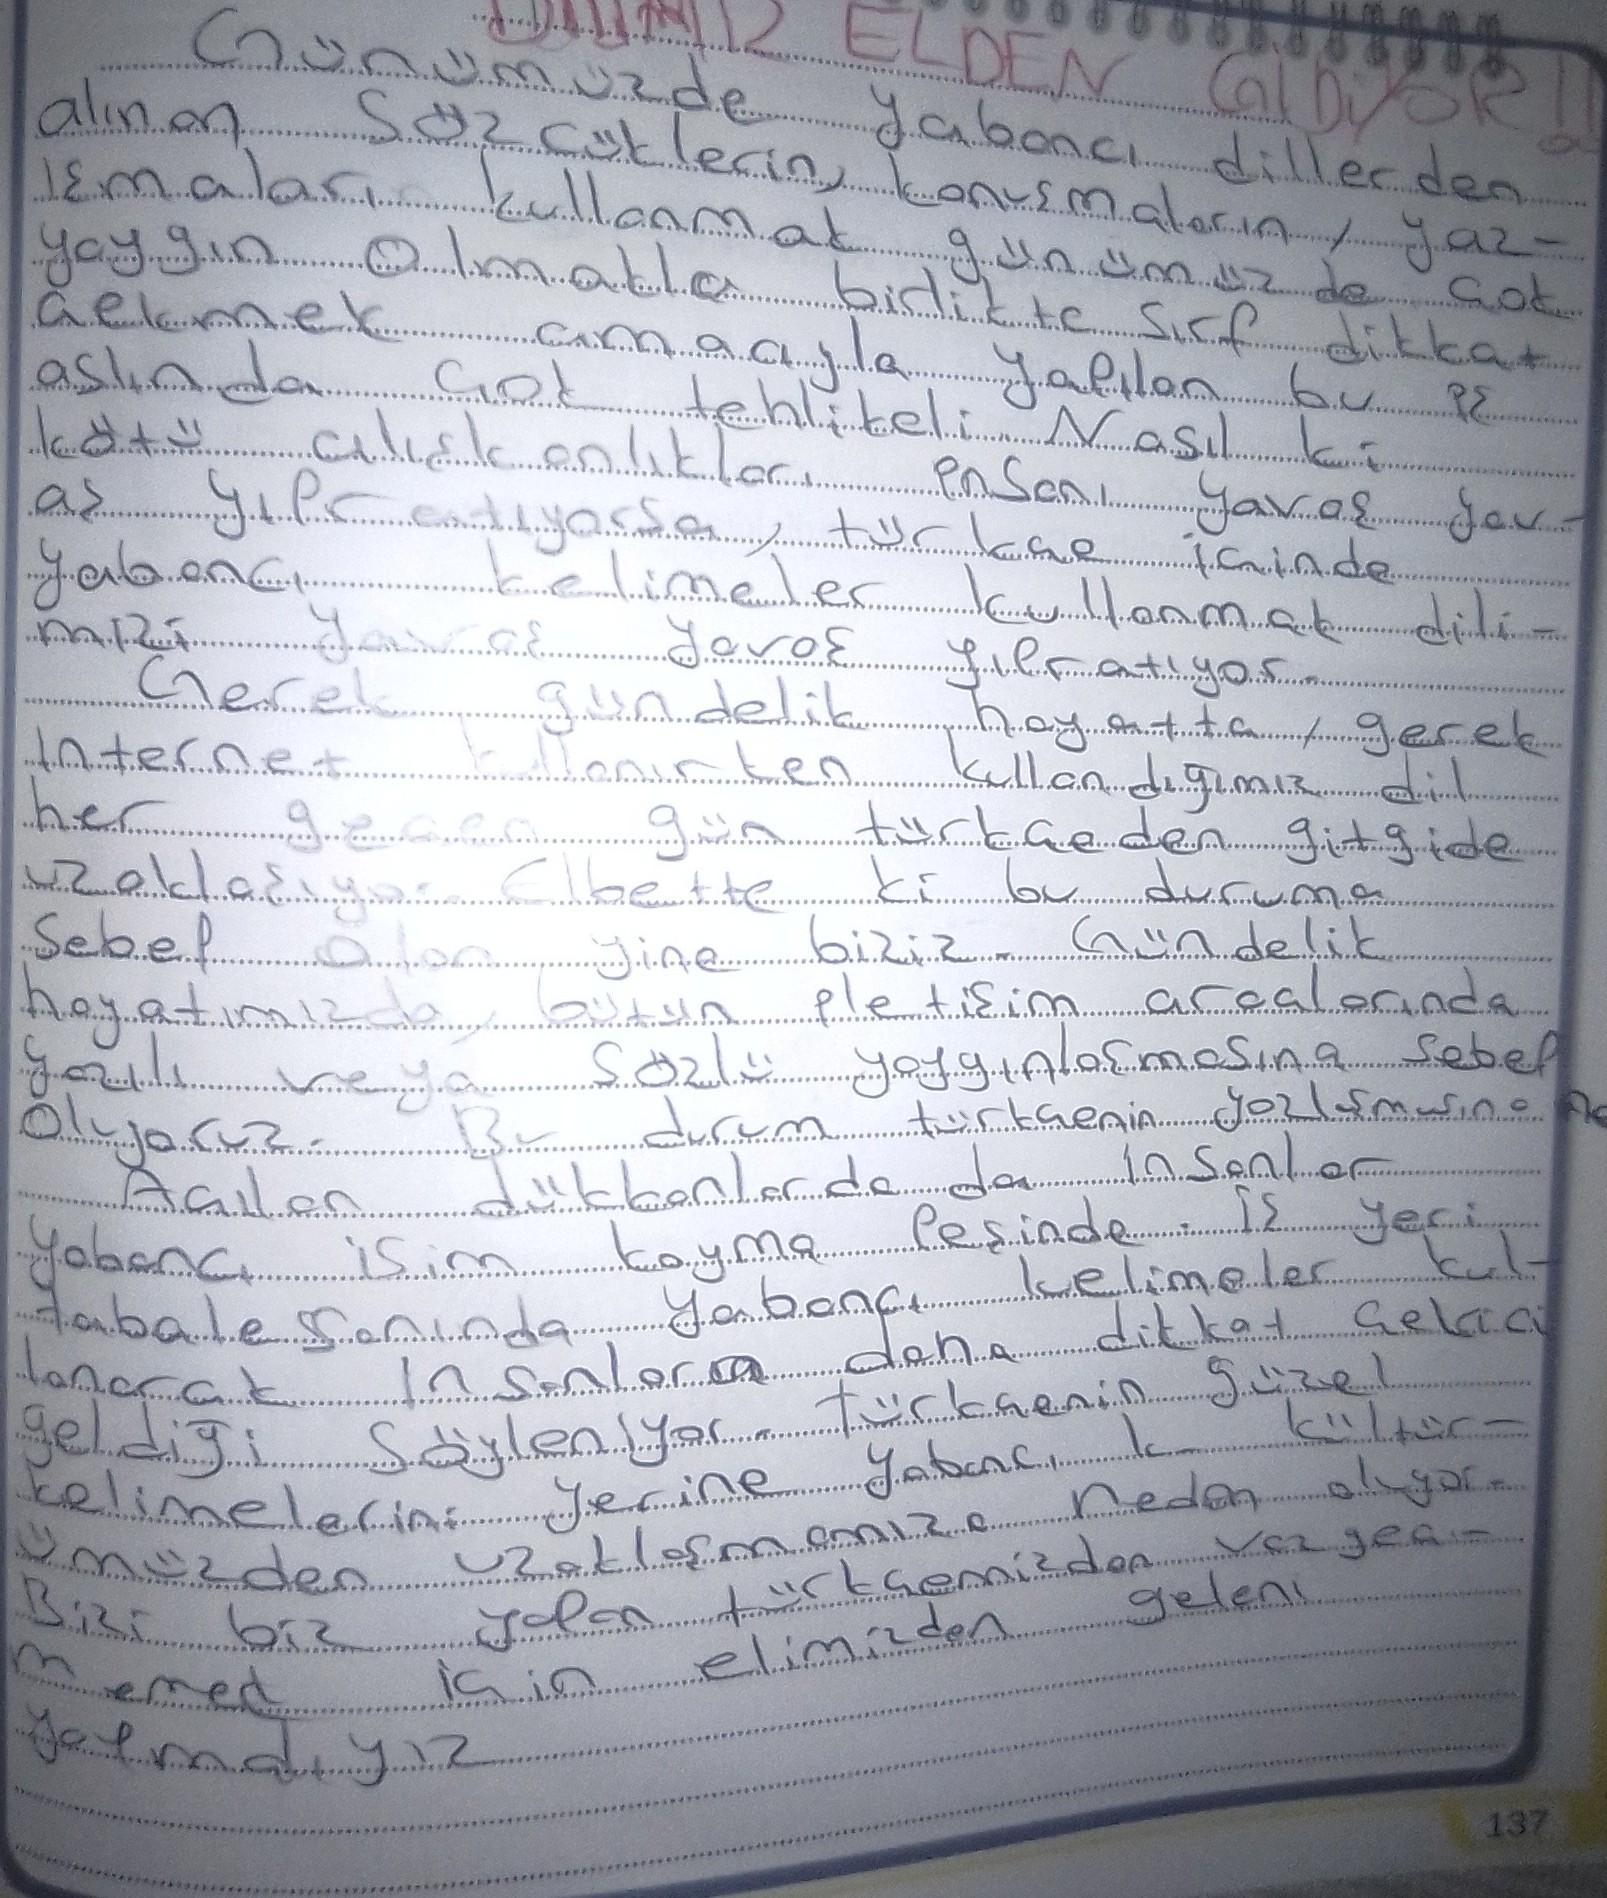 DİLİMİZ ELDEN GİDİYOR!!
Günümüzde yabancı dillerden
alınan sözcüklerin, konuşmaların, yaz-
ışmaları kullanmak günümüzde çok
yaygın olmakla birlikte sırf dikkat
çekmek amacıyla yapılan bu iş
aslında çok tehlikeli Nasıl ki
kötü alışkanlıkları insanı yavaş yav-
aş yıpratıyorsa, türkçe içinde
yabancı kelimeler kullanmak dili-
mizi yavaş yavaş yıpratıyor.
Gerek gündelik hayatta, gerek
internet kullanırken kullandığımız dil
her geçen gün türkçeden gitgide
uzaklaşıyor. Elbette ki bu duruma
sebep olan yine biziz. Gündelik
hayatımızda, bütün iletişim araçlarında
yazılı veya sözlü yaygınlaşmasına sebep
oluyoruz. Bu durum türkçenin yozlaşmusına ne
Açılan dükkanlarda da insanlar
yabancı isim koyma peşinde. İş yeri
tabale yabancı kelimeler kul-
lanarak insanlara daha dikkat çekici
geldiği söyleniyor. türkçenin güzel
kelimelerini yerine yabancı k kültür-
ümüzden uzaklaşmamıza neden oluyor.
Bizi biz yapan türkçemizden vazgeç-
memek için elimizden geleni
yapmalıyız
137